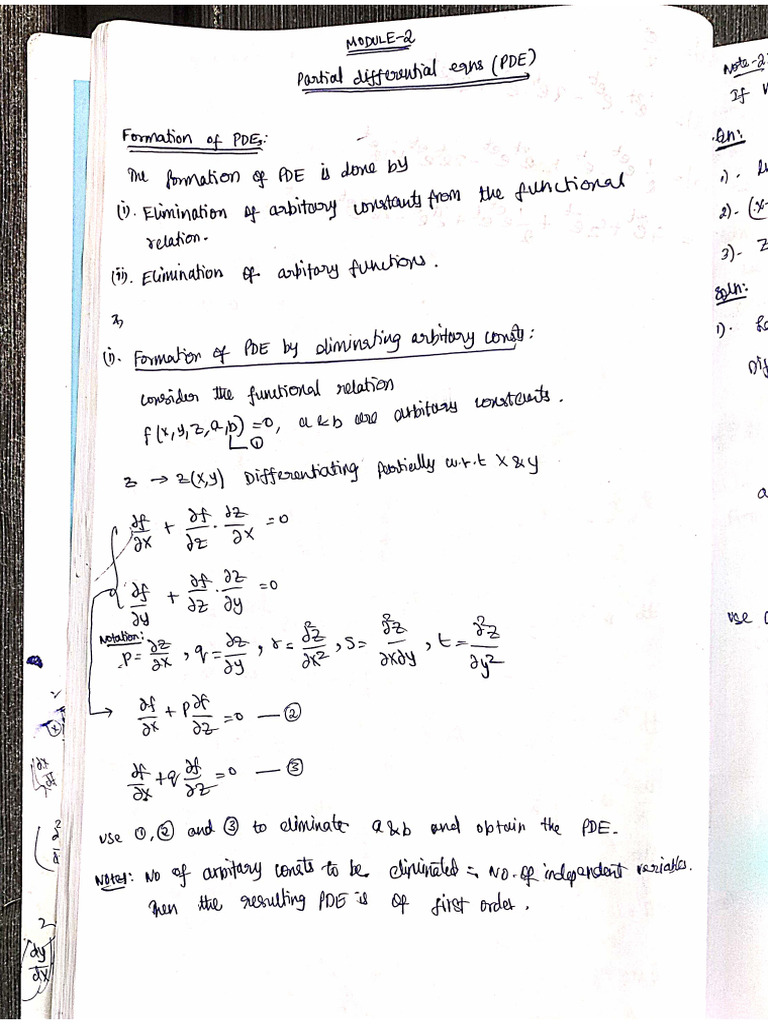 MODULE-2
Partial differential eqns (PDE)
Formation of PDEs:
The formation of PDE is done by
(i). Elimination of arbitory constants from the functional
relation.
(ii). Elimination of arbitory functions.
(i). Formation of PDE by eliminating arbitory consts:
consider the functional relation
f(x,y,z,a,b)=0, a & b are arbitory constants.
①
z → z(x,y) Differentiating partially w.r.t x & y
∂f/∂x + ∂f/∂z · ∂z/∂x = 0
∂f/∂y + ∂f/∂z · ∂z/∂y = 0
Notation:
p = ∂z/∂x , q = ∂z/∂y , r = ∂²z/∂x² , s = ∂²z/∂x∂y , t = ∂²z/∂y²
∂f/∂x + p ∂f/∂z = 0 — ②
∂f/∂x + q ∂f/∂z = 0 — ③
use ①, ② and ③ to eliminate a & b and obtain the PDE.
Note1: No of arbitory consts to be eliminated = No. of independent variables.
Then the resulting PDE is of first order.
2
dy/dx
Note-2:
If
Qn:
1).
2).
3).
Soln:
1).
use